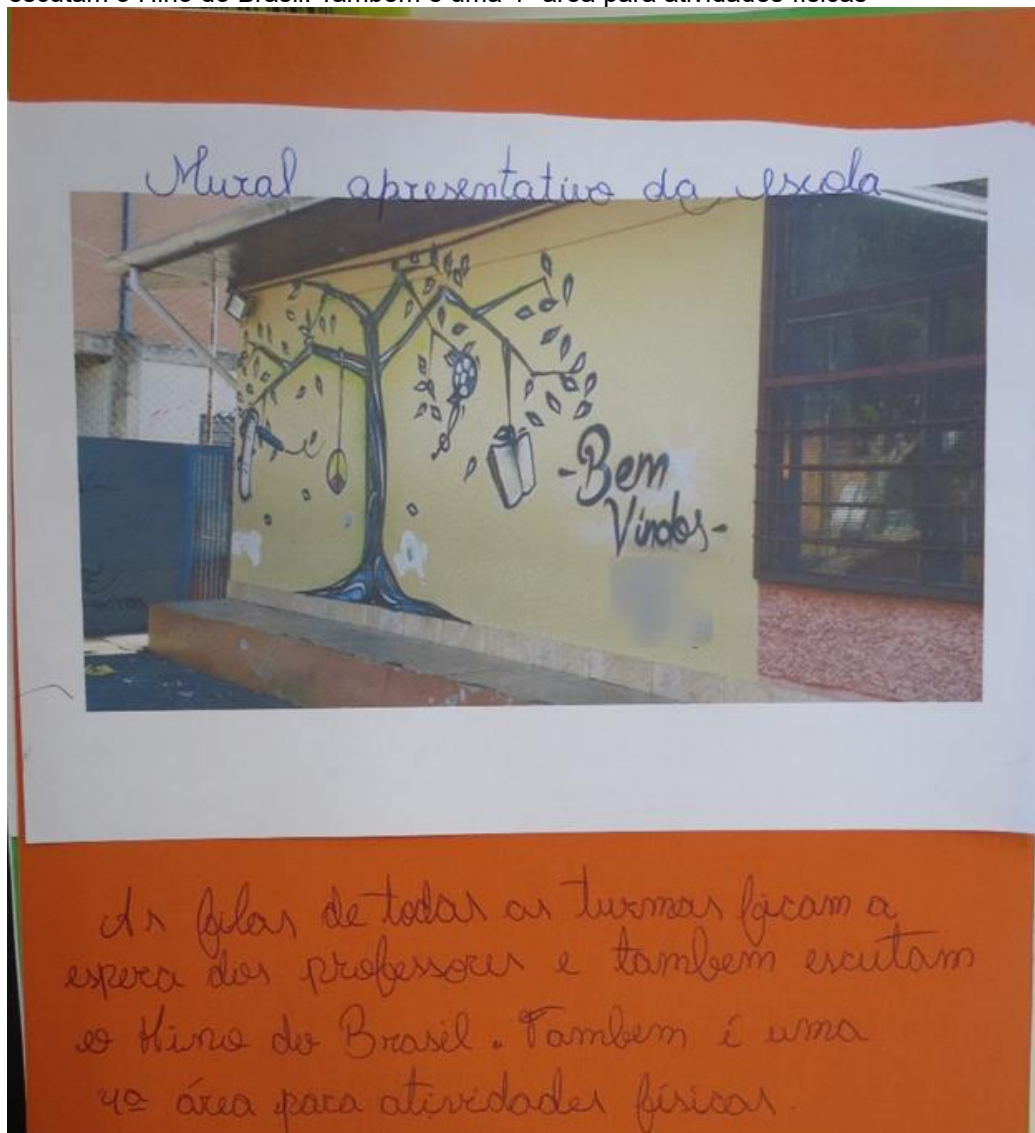 escutam o Hino do Brasil. Também é uma 4ª área para atividades físicas
Mural apresentativo da escola
-Bem
Vindos-
As filas de todas as turmas ficam a
espera dos professores e tambem escutam
o Hino do Brasil. Tambem é uma
4ª área para atividades físicas.